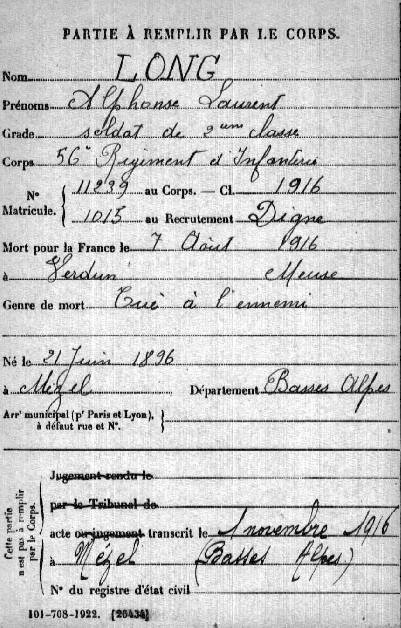 PARTIE À REMPLIR PAR LE CORPS.
Nom LONG
Prénoms Alphonse Laurent
Grade soldat de 2eme classe
Corps 56e Régiment d'Infanterie
N° Matricule. { 11239 au Corps. — Cl. 1916
1015 au Recrutement Digne
Mort pour la France le 7 Août 1916
à Verdun Meuse
Genre de mort Tué à l'ennemi
Né le 21 Juin 1896
à Mézel Département Basses Alpes
Arrt municipal (pr Paris et Lyon),
à défaut rue et N°.
Cette partie n'est pas à remplir par le Corps.
Jugement rendu le
par le Tribunal de
acte ou jugement transcrit le 1 novembre 1916
à Mézel (Basses Alpes)
N° du registre d'état civil
101-708-1922. [26434]